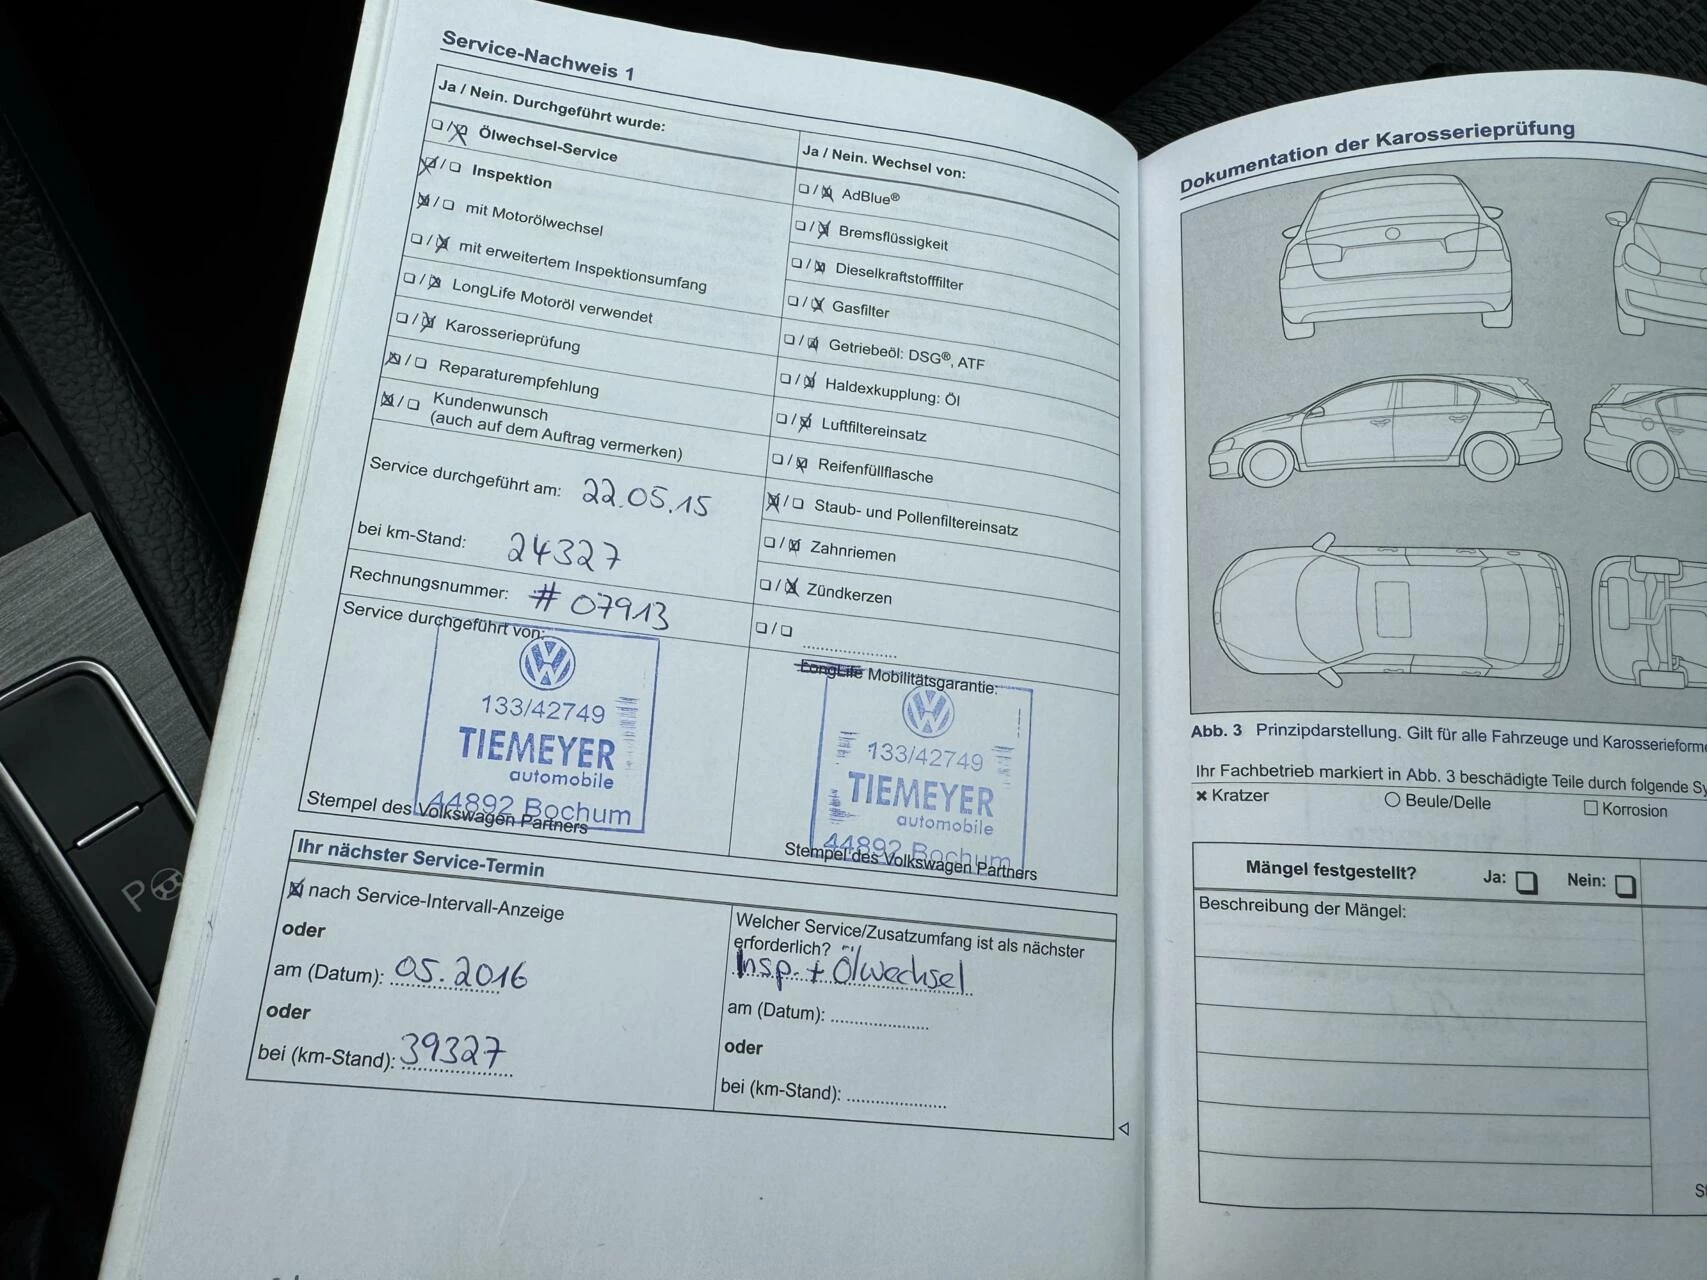 Service-Nachweis 1
Ja / Nein. Durchgeführt wurde:
Ölwechsel-Service
Inspektion
mit Motorölwechsel
mit erweitertem Inspektionsumfang
LongLife Motoröl verwendet
Karosserieprüfung
Reparaturempfehlung
Kundenwunsch
(auch auf dem Auftrag vermerken)
Service durchgeführt am: 22.05.15
bei km-Stand: 24327
Rechnungsnummer: # 07913
Service durchgeführt von:
133/42749
TIEMEYER
automobile
44892 Bochum
Stempel des Volkswagen Partners
Ja / Nein. Wechsel von:
AdBlue®
Bremsflüssigkeit
Dieselkraftstofffilter
Gasfilter
Getriebeöl: DSG®, ATF
Haldexkupplung: Öl
Luftfiltereinsatz
Reifenfüllflasche
Staub- und Pollenfiltereinsatz
Zahnriemen
Zündkerzen
LongLife Mobilitätsgarantie:
133/42749
TIEMEYER
automobile
44892 Bochum
Stempel des Volkswagen Partners
Ihr nächster Service-Termin
nach Service-Intervall-Anzeige
oder
am (Datum): 05.2016
oder
bei (km-Stand): 39327
Welcher Service/Zusatzumfang ist als nächster
erforderlich?
Insp. + Ölwechsel
am (Datum):
oder
bei (km-Stand):
Dokumentation der Karosserieprüfung
Abb. 3 Prinzipdarstellung. Gilt für alle Fahrzeuge und
Ihr Fachbetrieb markiert in Abb. 3 beschädigte Teile durch folgende
Kratzer
Beule/Delle
Korrosion
Mängel festgestellt? Ja: Nein:
Beschreibung der Mängel:
P